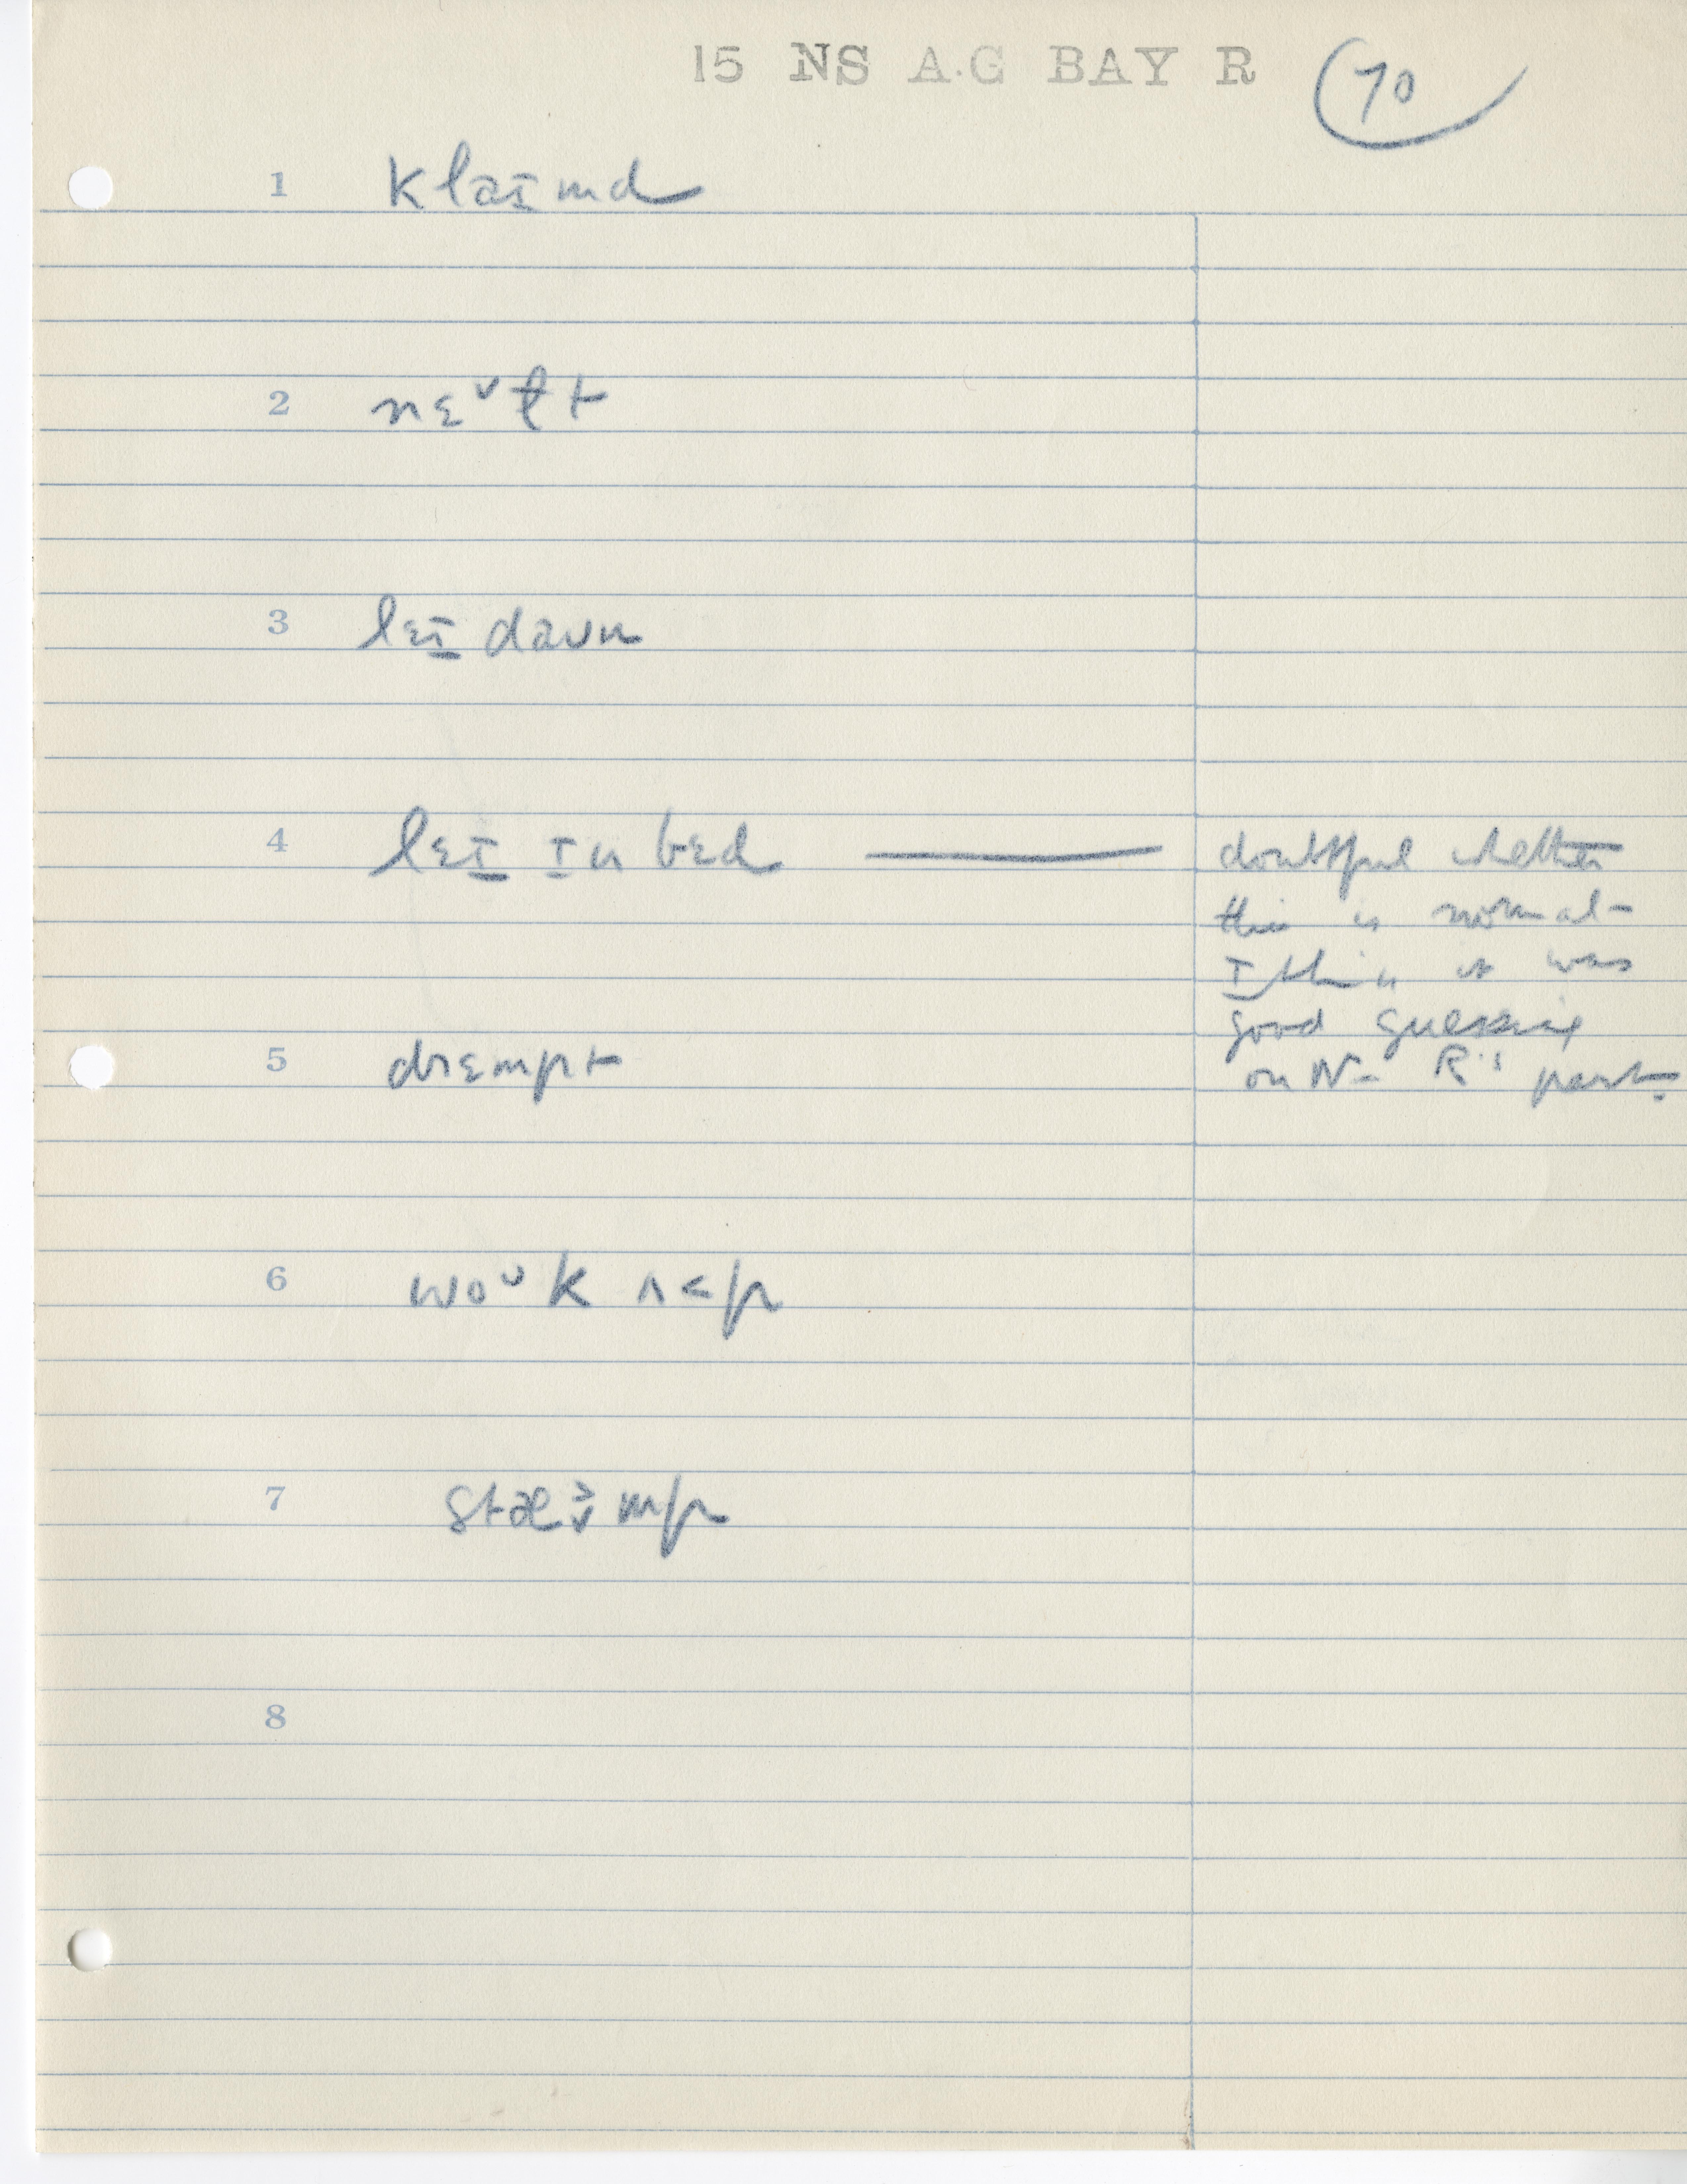 15 NS A.G BAY R 70
1 klaɪmd
2 nɛ˅ɫt
3 lɛɪ daʊn
4 lɛɪ ɪn bɛd — doubtful whether
this is normal –
I think it was
good guessing
5 drɛmpt
on N– R's part.
6 woᴗk ʌ<p
7 stæɪ̌mp
8